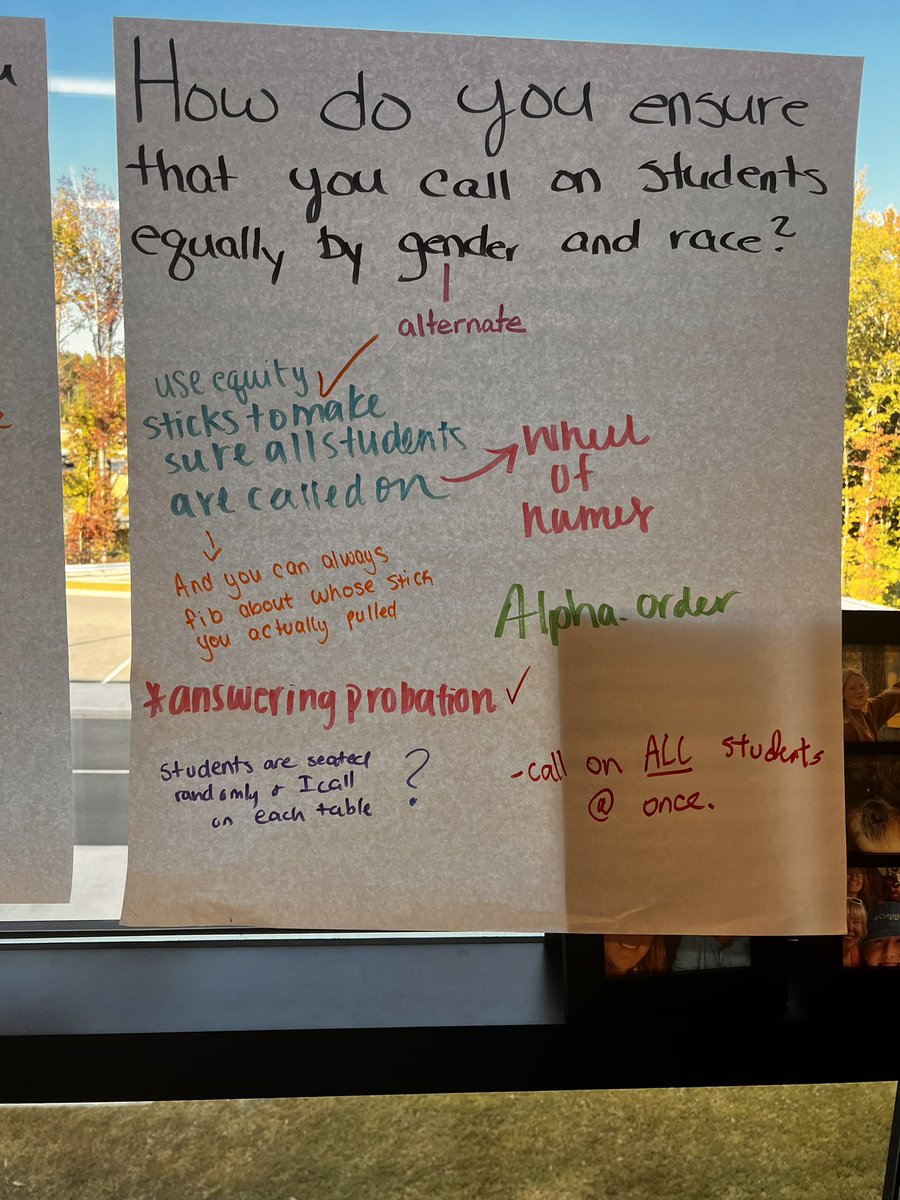 How do you ensure
that you call on students
equally by gender and race?
alternate
use equity
sticks to make
sure all students
are called on
Wheel
of
names
And you can always
fib about whose stick
you actually pulled
Alpha. order
*answering probation ✓
Students are seated
randomly & I call
on each table
?
-call on ALL students
@ once.